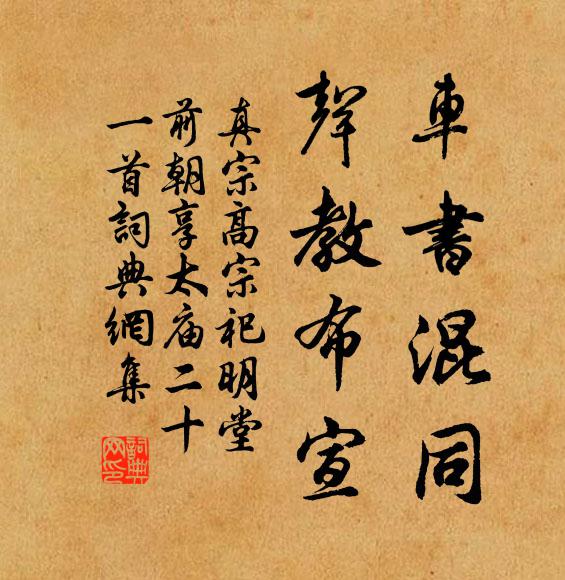 車書混同
聲教布宣
真宗高宗祀明堂
前朝享太庙二十
一首詞典網集
詞典
网印